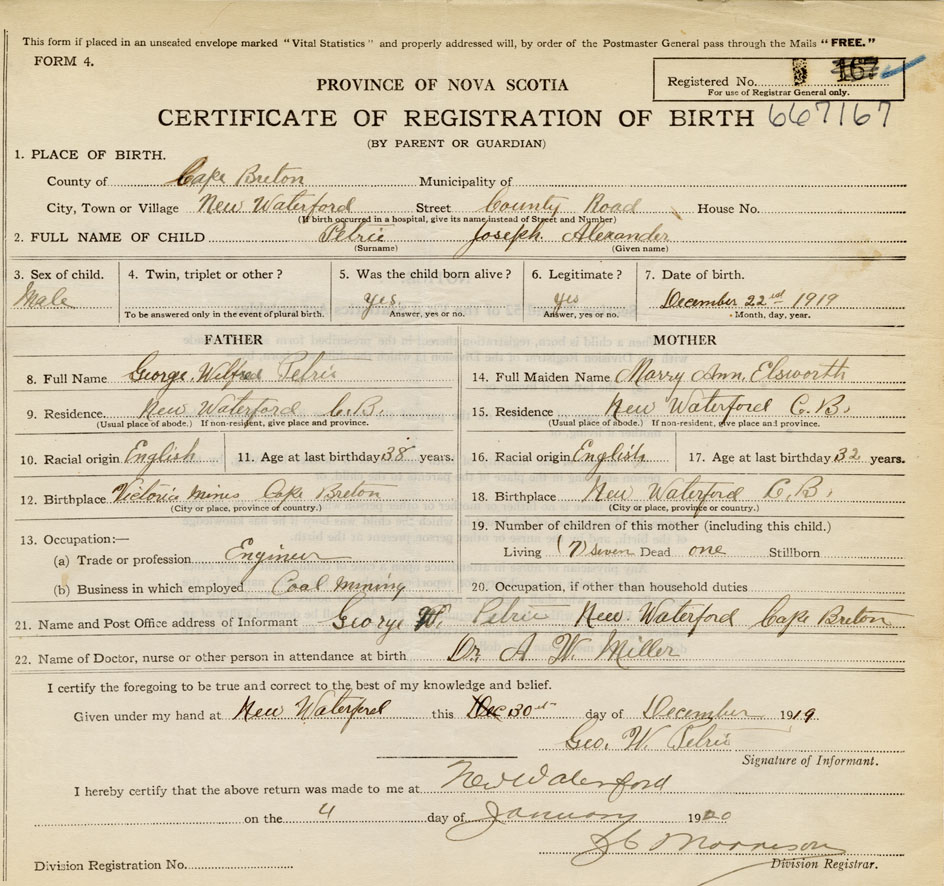 This form if placed in an unsealed envelope marked "Vital Statistics" and properly addressed will, by order of the Postmaster General pass through the Mails "FREE."
FORM 4.
Registered No. 167
For use of Registrar General only.
PROVINCE OF NOVA SCOTIA
CERTIFICATE OF REGISTRATION OF BIRTH 667167
(BY PARENT OR GUARDIAN)
1. PLACE OF BIRTH.
County of Cape Breton Municipality of
City, Town or Village New Waterford Street County Road House No.
(If birth occurred in a hospital, give its name instead of Street and Number)
2. FULL NAME OF CHILD Petrie Joseph Alexander
(Surname) (Given name)
3. Sex of child. 4. Twin, triplet or other? 5. Was the child born alive? 6. Legitimate? 7. Date of birth.
Male yes. yes December 22nd 1919
To be answered only in the event of plural birth. Answer, yes or no. Answer, yes or no. Month, day, year.
FATHER MOTHER
8. Full Name George Wilfred Petrie 14. Full Maiden Name Marry Ann Elsworth
9. Residence. New Waterford C.B. 15. Residence New Waterford C.B.
(Usual place of abode.) If non-resident, give place and province. (Usual place of abode.) If non-resident, give place and province.
10. Racial origin English 11. Age at last birthday 38 years. 16. Racial origin English 17. Age at last birthday 32 years.
12. Birthplace Victoria Mines Cape Breton 18. Birthplace New Waterford C.B.
(City or place, province or country.) (City or place, province or country.)
13. Occupation:— 19. Number of children of this mother (including this child.)
(a) Trade or profession Engineer Living (7) seven Dead one Stillborn
(b) Business in which employed Coal Mining 20. Occupation, if other than household duties
21. Name and Post Office address of Informant George W. Petrie New Waterford Cape Breton
22. Name of Doctor, nurse or other person in attendance at birth Dr. A W. Miller
I certify the foregoing to be true and correct to the best of my knowledge and belief.
Given under my hand at New Waterford this 30 day of December 1919
Geo. W. Petrie
Signature of Informant.
I hereby certify that the above return was made to me at New Waterford
on the 4 day of January 1920
Morrison
Division Registration No. Division Registrar.